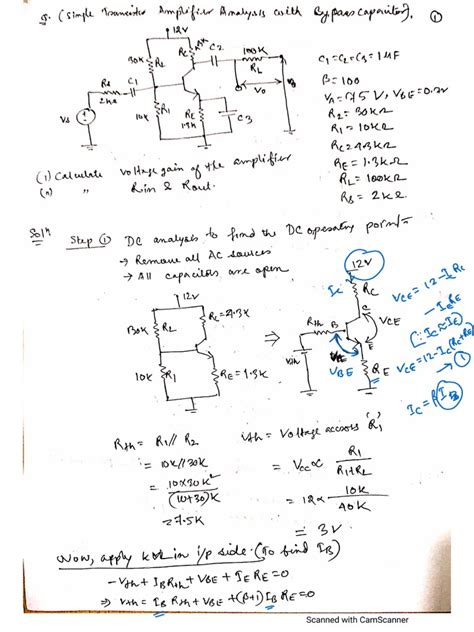 Q. (Simple Transistor Amplifier Analysis with Bypass Capacitor). ①
12V
30K R2
RC
C2
100K
RL
Rs
2KΩ
C1
Vo
Vs
10K
R1
RE
1.3K
C3
C1=C2=C3=1μF
β=100
VA=75V, VBE=0.7V
R2=30KΩ
R1=10KΩ
RC=4.3KΩ
RE=1.3KΩ
RL=100KΩ
RS=2KΩ
(i) Calculate voltage gain of the amplifier
(ii) " Rin & Rout.
Soln
Step ① DC analysis to find the DC operating point:-
→ Remove all AC sources
→ All capacitors are open
12V
30K R2
RC=4.3K
10K R1
RE=1.3K
12V
IC
RC
C
Rth B
VCE
Vth
E
VBE
RE
VCE=12-ICRC
-IERE
(∵IC≈IE)
VCE=12-IC(RC+RE)
→①
IC=βIB
Rth = R1//R2
= 10K//30K
= 10x30K²
(10+30)K
=7.5K
Vth = Voltage across 'R1'
= VCC x R1
R1+R2
= 12x 10K
40K
= 3V
Now, apply KVL in i/p side. (To find IB)
-Vth+IBRth+VBE+IERE=0
⇒ Vth=IBRth+VBE+(β+1)IBRE=0
Scanned with CamScanner